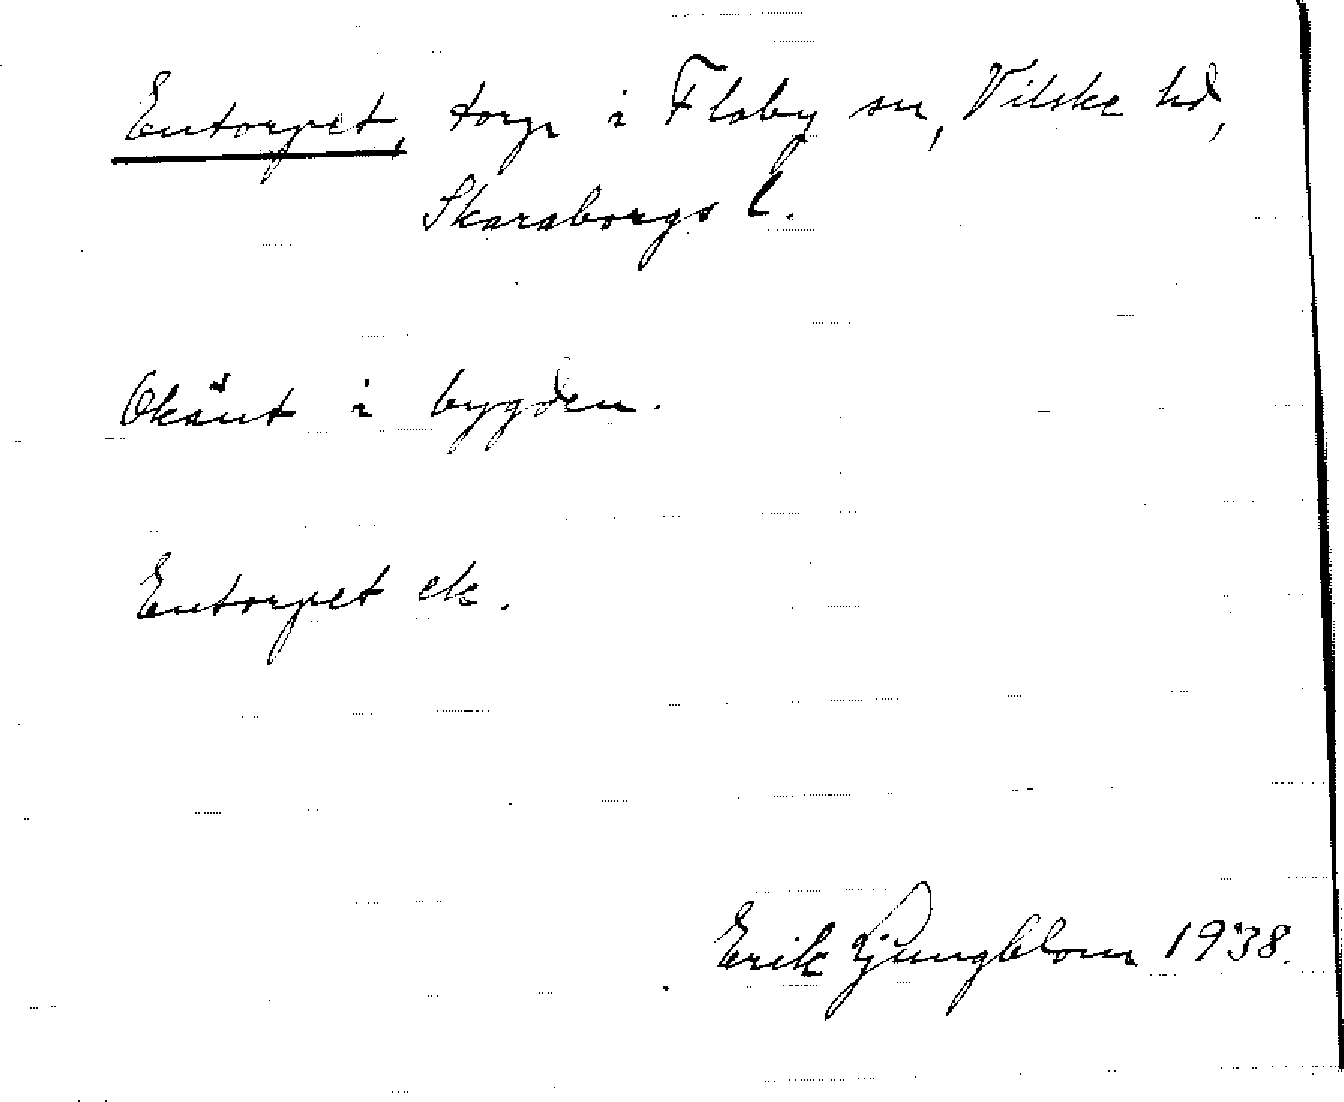 Entorpet, torp i Floby sn, Vilske hd,
Skaraborgs l.
Okänt i bygden.
Entorpet ek.
Erik Ljungblom 1938.